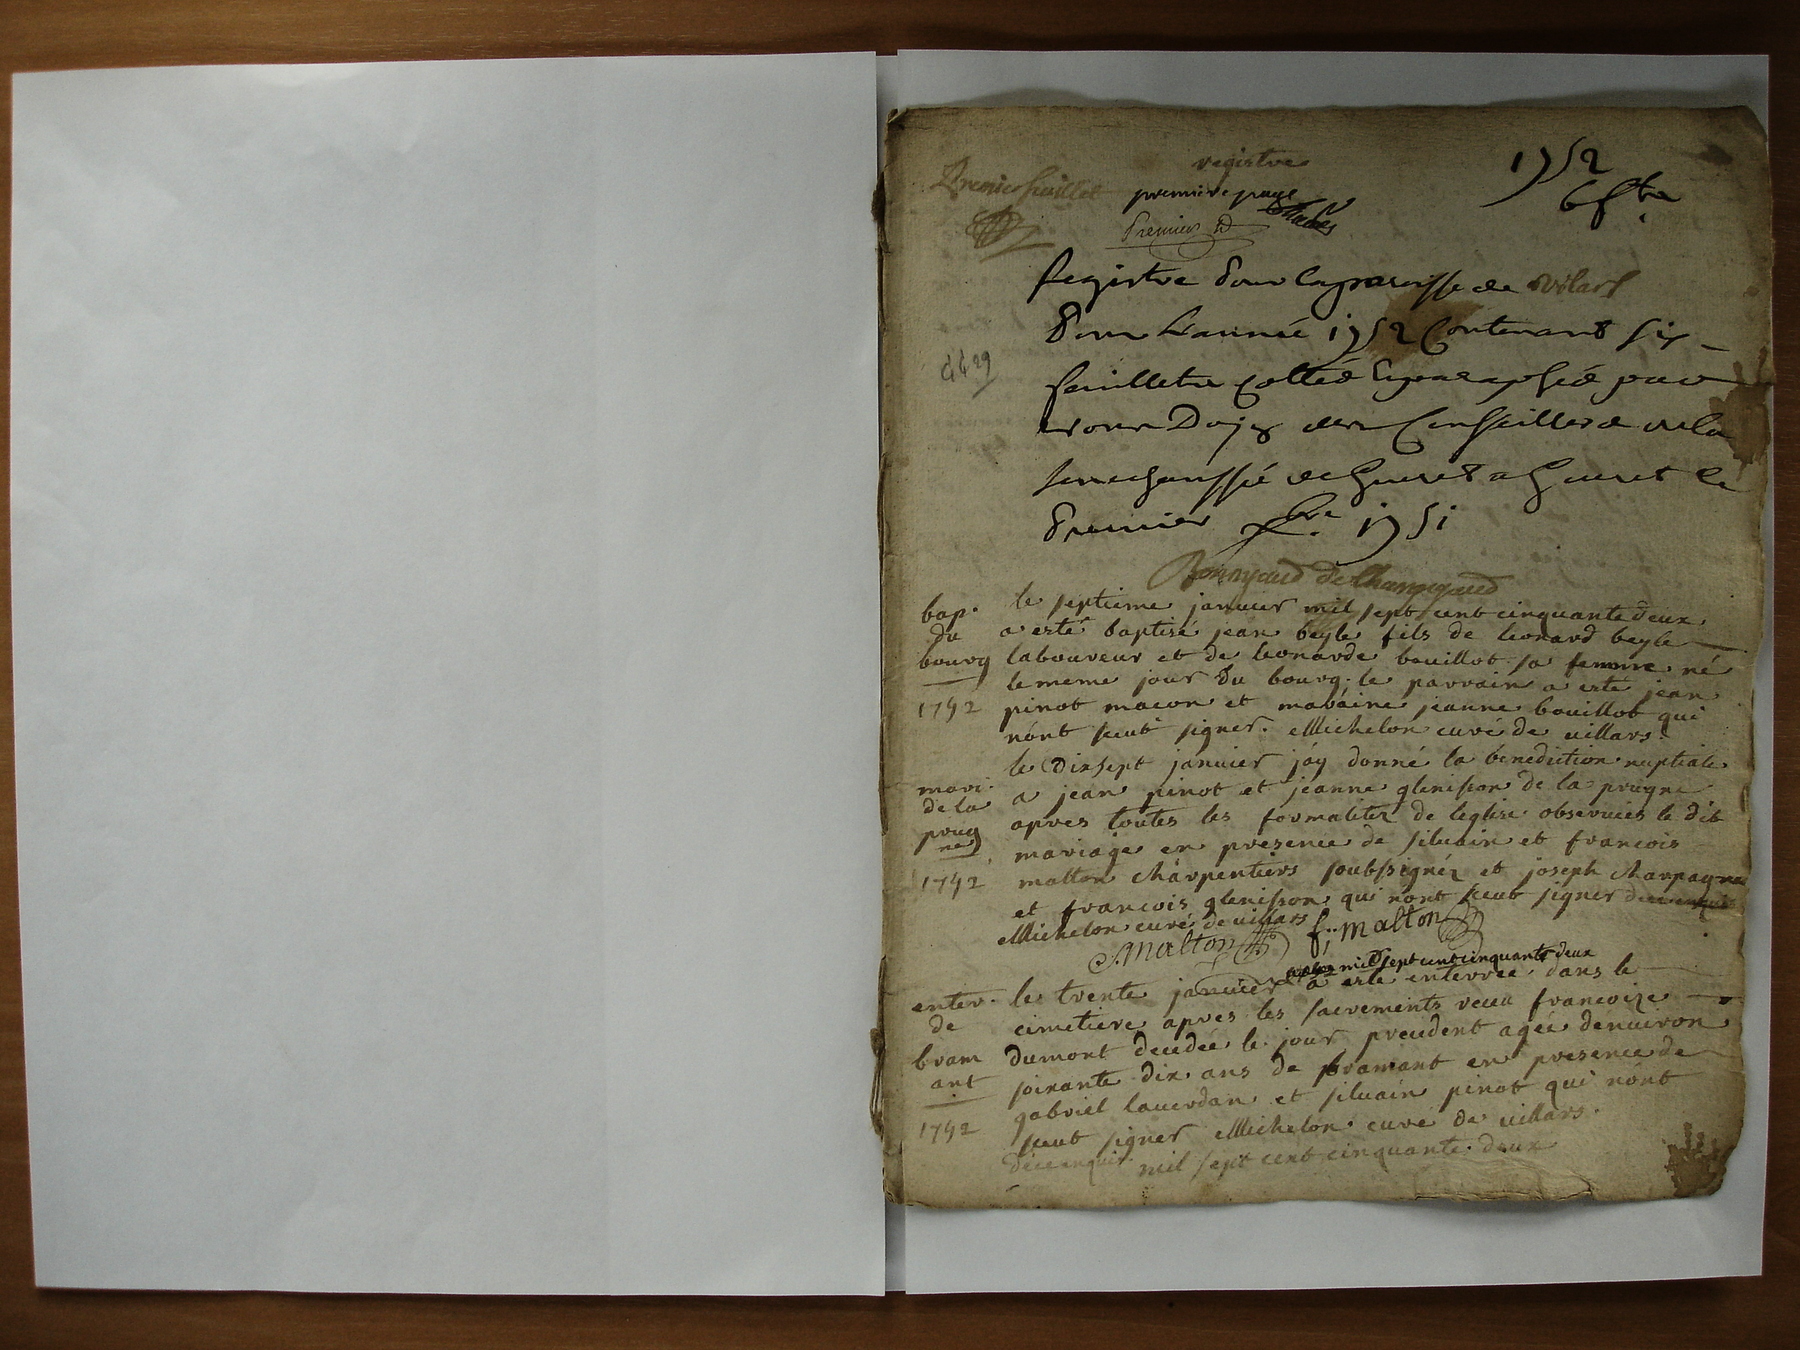 registre
Premier feuillet
premiere page
Premier
1752
6 f.ts
Registre pour la paroisse de vilars
pour L'année 1752 Contenant six
feuillets cottés et paraphés par
nous Doyen des Conseillers de la
senechaussée de Gueret a Gueret le
Premier xbre 1751
4429
Bonnyaud de Champegaud
bap.
du
bourg
1752
le septieme janvier mil sept cent cinquante deux
a esté baptisé jean beyle fils de leonard beyle
laboureur et de leonarde bouillot sa femme né
le meme jour du bourg. le parrain a esté jean
pinot macon et maraine jeanne bouillot qui
nónt sceut signer. Michelon curé de villars.
mari.
de la
proug
ne
1752
le Dixsept janvier jáy donné la benediction nuptiale
a jean pinot et jeanne glenisson de la prugne
apres toutes les formalitez de leglise observées le dit
mariage en presence de silvain et francois
malton chárpentiers soubssignéz et joseph charpagne
et francois glenisson qui nont sceut signer
Michelon curé de villars
S. malton f. malton
enter.
de
bram
ant
1752
mil sept cent cinquante deux
le trente janvier a esté enterrée dans le
cimetiere apres les sacrements receu francoize
dumont decedée le jour precedent agée denviron
soixante dix ans de bramant en presence de
gabriel laverdan et silvain pinot qui nónt
sceut signer Michelon curé de villars.
mil sept cent cinquante deux